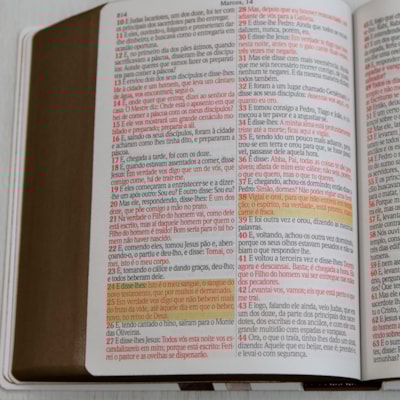 814
Marcos, 14
10 E Judas Iscariotes, um dos doze, foi ter com
os principais dos sacerdotes para lho entregar.
11 E eles, ouvindo-o, folgaram e prometeram dar-
lhe dinheiro; e buscava como o entregaria em
ocasião oportuna.
12 E, no primeiro dia dos pães ázimos, quando
sacrificavam a páscoa, disseram-lhe os discípu-
los: Aonde queres que vamos fazer os preparati-
vos para comer a páscoa?
13 E enviou dois dos seus discípulos e disse-lhes:
Ide à cidade e um homem, que leva um cântaro
de água, vos encontrará; segui-o.
14 E, onde quer que entrar, dizei ao senhor da
casa: O Mestre diz: Onde está o aposento em que
hei de comer a páscoa com os meus discípulos?
15 E ele vos mostrará um grande cenáculo mo-
bilado e preparado; preparai-a ali.
16 E, saindo os seus discípulos, foram à cidade
e acharam como lhes tinha dito, e prepararam a
páscoa.
17 E, chegada a tarde, foi com os doze.
18 E, quando estavam assentados a comer, disse
Jesus: Em verdade vos digo que um de vós, que
comigo come, há de trair-me.
19 E eles começaram a entristecer-se e a dizer-
lhe um após outro: Sou eu? E outro disse: Sou eu?
20 Mas ele, respondendo, disse-lhes: É um dos
doze, que põe comigo a mão no prato.
21 Na verdade o Filho do homem vai, como dele
está escrito, mas ai daquele homem por quem o
Filho do homem é traído! Bom seria para o tal
homem não haver nascido.
22 E, comendo eles, tomou Jesus pão e, aben-
çoando-o, o partiu e deu-lho, e disse: Tomai, co-
mei, isto é o meu corpo.
23 E, tomando o cálice e dando graças, deu-lho;
e todos beberam dele.
24 E disse-lhes: Isto é o meu sangue, o sangue do
novo testamento, que por muitos é derramado.
25 Em verdade vos digo que não beberei mais
do fruto da vide, até àquele dia em que o beber,
novo, no reino de Deus.
26 E, tendo cantado o hino, saíram para o Monte
das Oliveiras.
27 E disse-lhes Jesus: Todos vós esta noite vos es-
candalizareis em mim; porque está escrito: Feri-
rei o pastor e as ovelhas se dispersarão.
28 Mas, depois que eu houver ressuscitado, irei
adiante de vós para a Galileia.
29 E disse-lhe Pedro: Ainda que todos se escan-
dalizem, nunca, porém, eu.
30 E disse-lhe Jesus: Em verdade te digo que
nesta noite, antes que o galo cante
31 Mas ele disse com mais
que me seja necessário morrer contigo, de modo
nenhum te negarei. E da mesma maneira diziam
todos também.
32 E foram a um lugar chamado Getsêmani, e
disse aos seus discípulos: Assentai-vos aqui, en-
quanto eu oro.
33 E tomou consigo a Pedro, Tiago e João, e co-
meçou a ter pavor e a angustiar-se
34 E disse-lhes: A minha alma está profundamente
triste até a morte; ficai aqui e vigiai.
35 E, tendo ido um pouco mais adiante, pros-
trou-se em terra e orou para que, se fosse possí-
vel, passasse dele aquela hora.
36 E disse: Aba, Pai, todas as coisas te são pos-
síveis; afasta de mim este cálice; não seja, porém,
o que eu quero, mas o que tu queres.
37 E, chegando, achou-os dormindo; e disse a
Pedro: Simão, dormes? Não podes vigiar uma hora?
38 Vigiai e orai, para que não entreis em tenta-
ção; o espírito, na verdade, está pronto, mas a
carne é fraca.
39 E foi outra vez e orou, dizendo as mesmas
palavras.
40 E, voltando, achou-os outra vez dormindo,
porque os seus olhos estavam pesados, e não sa-
biam o que responder-lhe.
41 E voltou a terceira vez e disse-lhes: Dormi
agora e descansai. Basta; é chegada a hora. Eis
que o Filho do homem vai ser entregue nas mãos
dos pecadores.
42 Levantai-vos, vamos; eis que está perto o que
me trai.
43 E logo, falando ele ainda, veio Judas, que era
um dos doze, da parte dos principais dos sacer-
dotes, e dos escribas e dos anciãos, e com ele uma
grande multidão com espadas e varapaus.
44 Ora, o que o traía, tinha-lhes dado um sinal,
dizendo: Aquele que eu beijar, esse é; prendei-o
e levai-o com segurança.